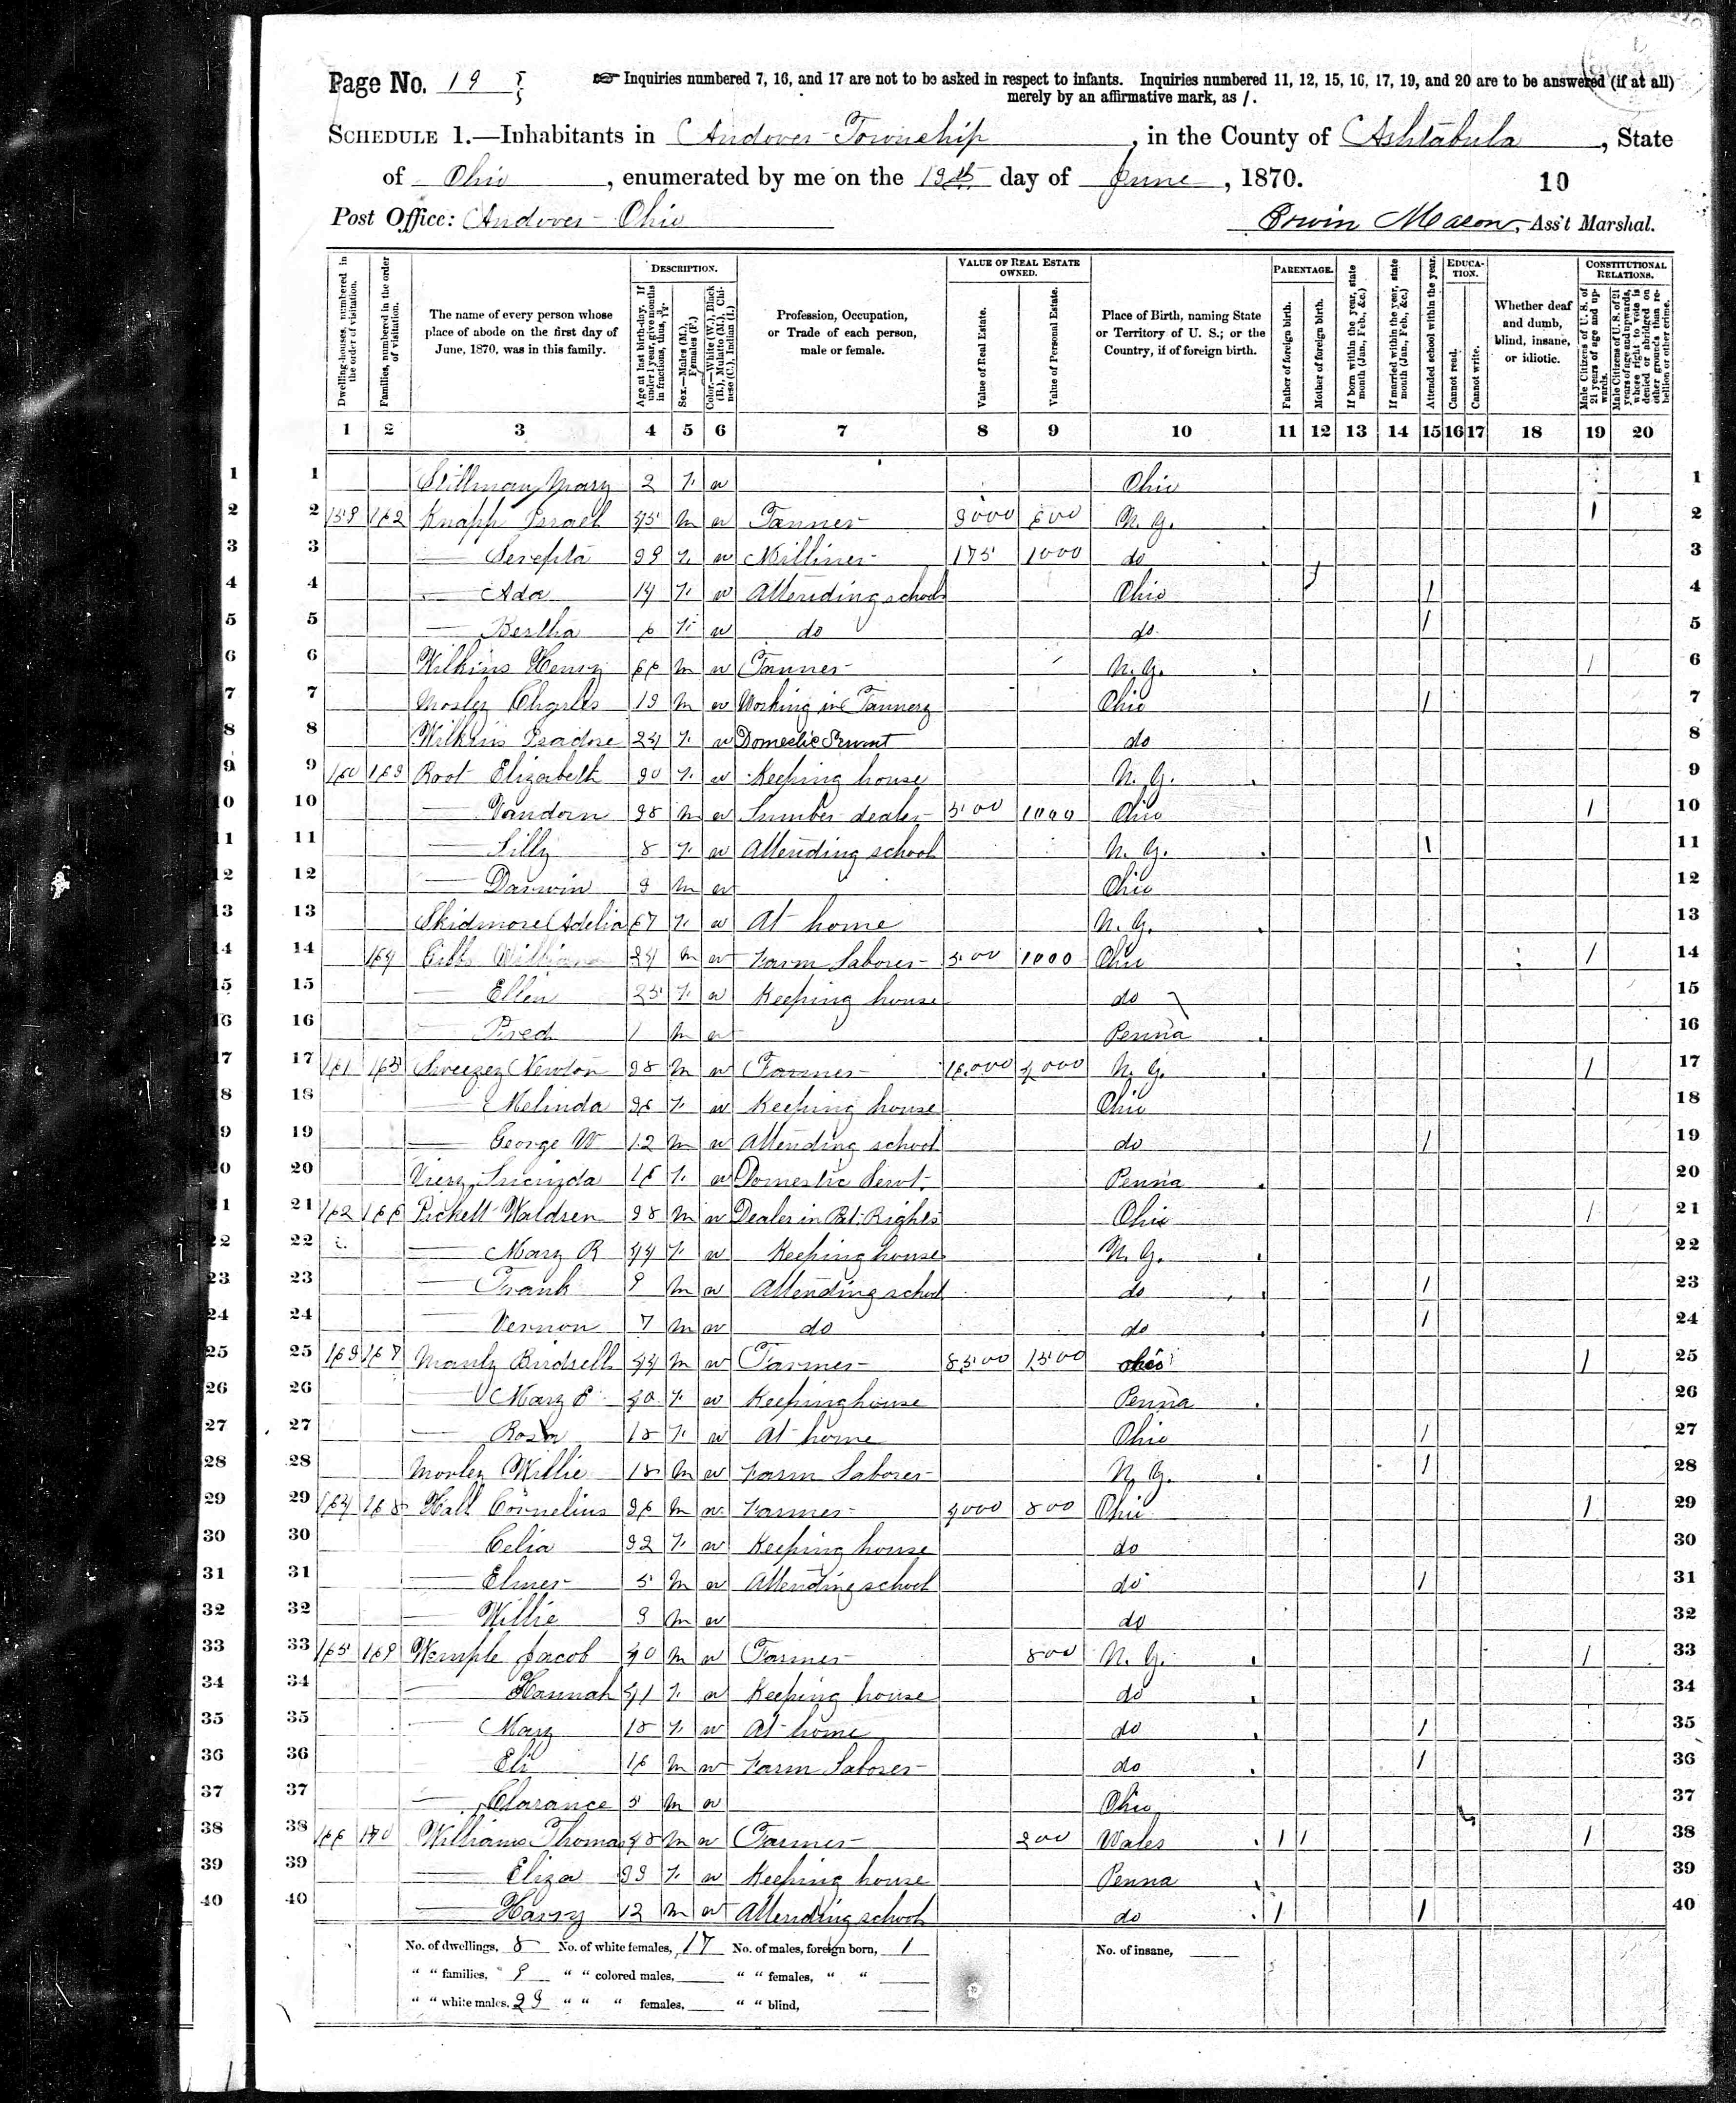 Page No. 19
☞ Inquiries numbered 7, 16, and 17 are not to be asked in respect to infants. Inquiries numbered 11, 12, 15, 16, 17, 19, and 20 are to be answered (if at all)
merely by an affirmative mark, as /.
SCHEDULE 1.—Inhabitants in Andover Township, in the County of Ashtabula, State
of Ohio, enumerated by me on the 13th day of June, 1870. 10
Post Office: Andover Ohio Erwin Mason, Ass't Marshal.
Dwelling-houses, numbered in the order of visitation.
Families, numbered in the order of visitation.
The name of every person whose place of abode on the first day of June, 1870, was in this family.
DESCRIPTION.
Age at last birth-day. If under 1 year, give months in fractions, thus, 3/12.
Sex.—Males (M.), Females (F.)
Color.—White (W.), Black (B.), Mulatto (M.), Chinese (C.), Indian (I.)
Profession, Occupation, or Trade of each person, male or female.
VALUE OF REAL ESTATE OWNED.
Value of Real Estate.
Value of Personal Estate.
Place of Birth, naming State or Territory of U. S.; or the Country, if of foreign birth.
PARENTAGE.
Father of foreign birth.
Mother of foreign birth.
If born within the year, state month (Jan., Feb., &c.)
If married within the year, state month (Jan., Feb., &c.)
Attended school within the year.
EDUCATION.
Cannot read.
Cannot write.
Whether deaf and dumb, blind, insane, or idiotic.
CONSTITUTIONAL RELATIONS.
Male Citizens of U. S. of 21 years of age and upwards.
Male Citizens of U. S. of 21 years of age and upwards, whose right to vote is denied or abridged on other grounds than rebellion or other crime.
1 2 3 4 5 6 7 8 9 10 11 12 13 14 15 16 17 18 19 20
1 1 Stillman Mary 2 F. w Ohio 1
2 2 159 162 Knapp Israel 45 M w Tanner 3000 600 N. Y. 1 2
3 3 — Serepta 39 F. w Milliner 175 1000 do 3
4 4 — Ada 14 F. w Attending school Ohio 1 4
5 5 — Bertha 6 F. w do do 1 5
6 6 Wilkins Henry 66 M w Tanner N. Y. 1 6
7 7 Mosley Charles 19 M w Working in Tannery Ohio 1 7
8 8 Wilkins Isadore 24 F. w Domestic Servant do 8
9 9 160 163 Root Elizabeth 30 F. w Keeping house N. Y. 9
10 10 — Vandorn 38 M w Lumber dealer 500 1000 Ohio 1 10
11 11 — Lilly 8 F. w Attending school N. Y. 1 11
12 12 — Darwin 3 M w Ohio 12
13 13 Skidmore Adelia 67 F. w At home N. Y. 13
14 14 164 William 24 M w Farm Laborer 500 1000 Ohio 1 14
15 15 — Ellen 25 F. w Keeping house do 15
16 16 — Fred 1 M w Penna 16
17 17 161 165 Sweezey Newton 38 M w Farmer 16,000 4000 N. Y. 1 17
18 18 — Melinda 36 F. w Keeping house Ohio 18
19 19 — George W 12 M w Attending school do 1 19
20 20 Lucinda 16 F. w Domestic Servt. Penna 20
21 21 162 166 Pickett Waldsen 38 M w Dealer in Pat. Rights Ohio 1 21
22 22 — Mary R 44 F. w Keeping house N. Y. 22
23 23 — Frank 9 M w Attending school do 1 23
24 24 — Vernon 7 M w do do 1 24
25 25 163 167 Manly Birdsell 44 M w Farmer 8500 1500 Ohio 1 25
26 26 — Mary E 40 F. w Keeping house Penna 26
27 27 — Rosa 18 F. w At home Ohio 1 27
28 28 Morley Willie 18 M w Farm Laborer N. Y. 1 28
29 29 164 168 Hall Cornelius 36 M w Farmer 4000 800 Ohio 1 29
30 30 — Celia 32 F. w Keeping house do 30
31 31 — Elmer 5 M w Attending school do 1 31
32 32 — Willie 3 M w do 32
33 33 165 169 Wemple Jacob 40 M w Farmer 800 N. Y. 1 33
34 34 — Hannah 41 F. w Keeping house do 34
35 35 — Mary 18 F. w At home do 1 35
36 36 — Eli 16 M w Farm Laborer do 1 36
37 37 — Clarance 5 M w Ohio 37
38 38 166 170 Williams Thomas 48 M w Farmer 200 Wales 1 1 1 38
39 39 — Eliza 33 F. w Keeping house Penna 39
40 40 — Harry 12 M w Attending school do 1 1 40
No. of dwellings, 8 No. of white females, 17 No. of males, foreign born, 1 No. of insane,
" " families, 9 " " colored males, " " females, " "
" " white males, 23 " " " females, " " blind,